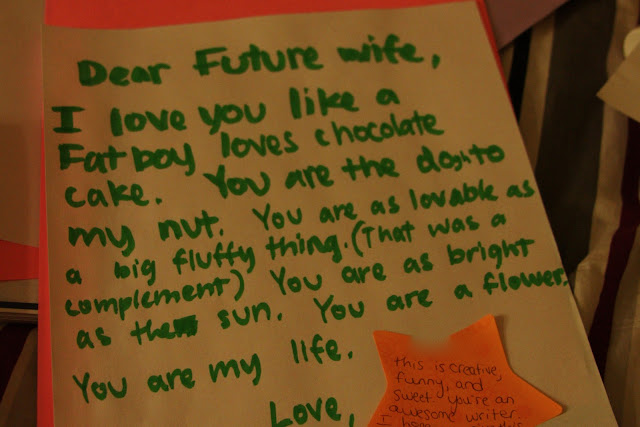 Dear Future wife,
I love you like a
Fat boy loves chocolate
cake. You are the to
my nut. You are as lovable as
a big fluffy thing. (That was a
complement) You are as bright
as the sun. You are a flower.
You are my life.
Love,
this is creative,
funny, and
sweet you're an
awesome writer.
I